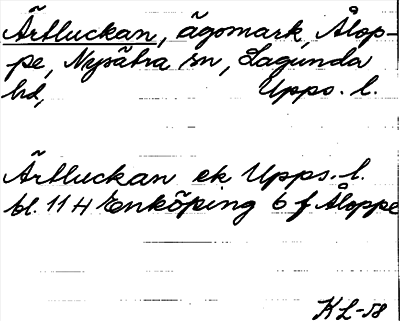 Ärtluckan, ägomark, Ålop-
pe, Nysätra sn, Lagunda
hd, Upps. l.
Ärtluckan ek Upps. l.
bl. 11 H Enköping 6 f Åloppe
KL-58